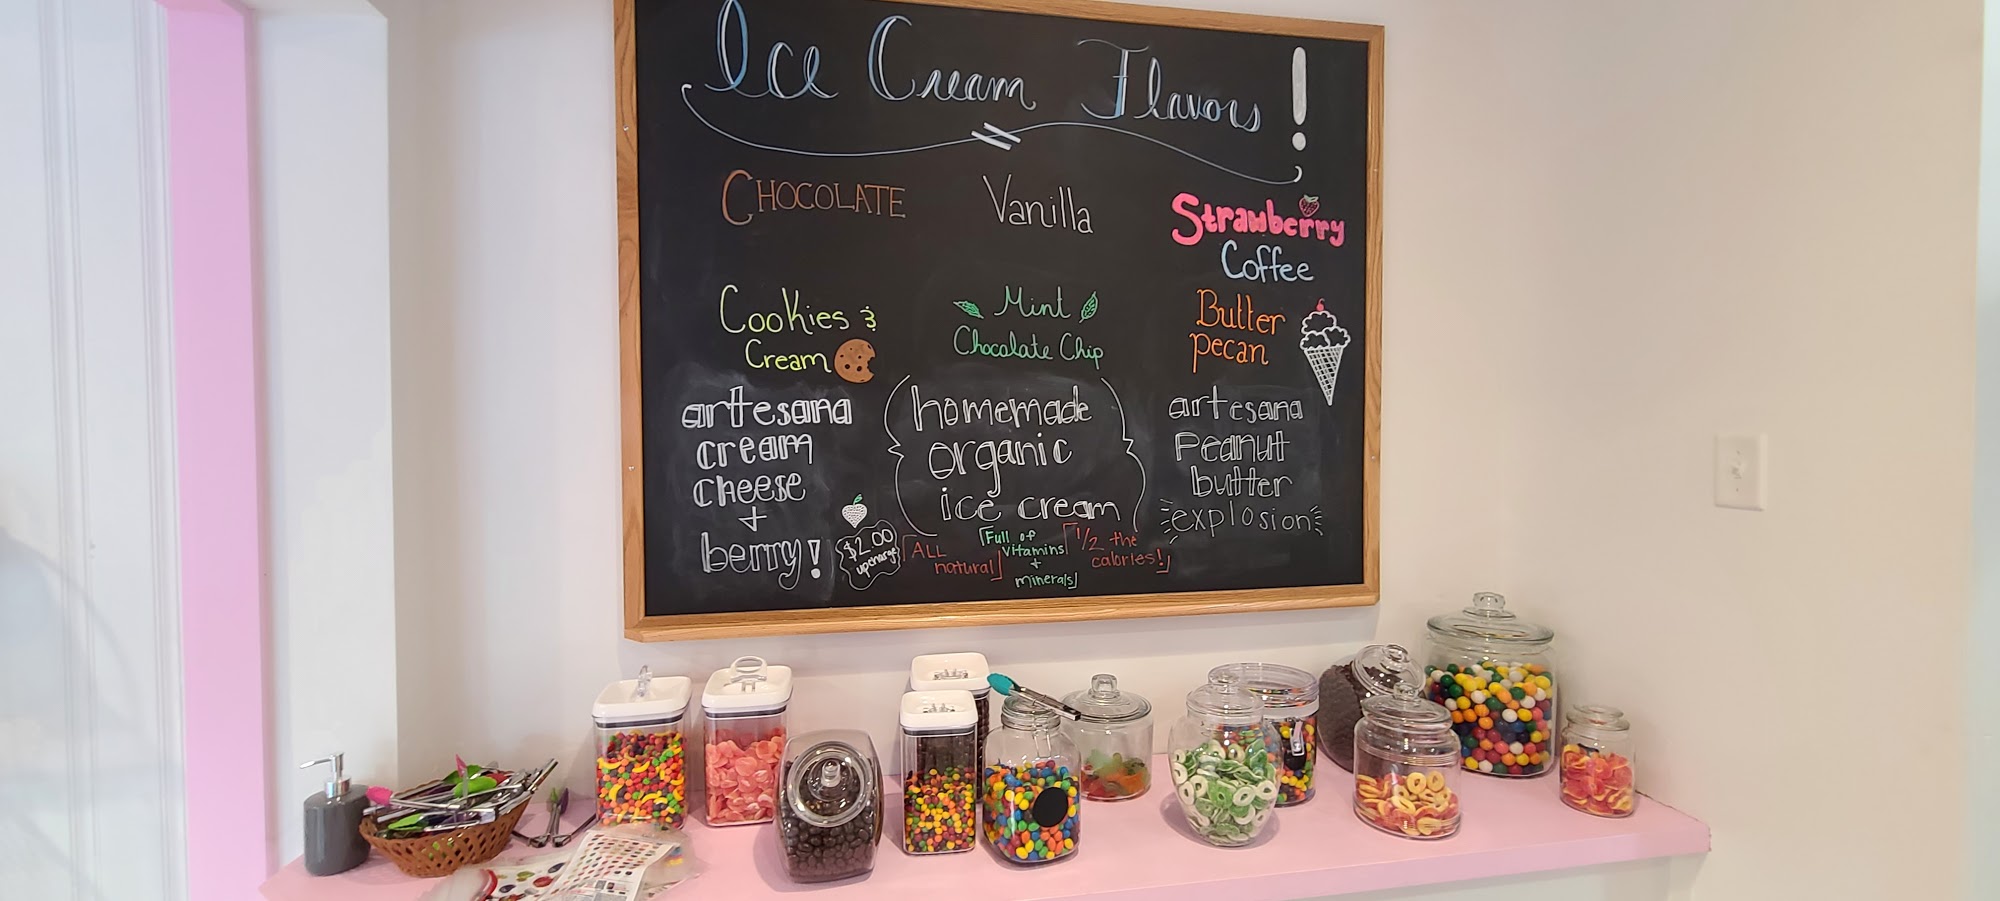 Ice Cream Flavors!
CHOCOLATE
Vanilla
Strawberry
Coffee
Cookies &
Cream
Mint
Chocolate Chip
Butter
pecan
artesana
cream
cheese
+
berry!
$2.00
upcharge
homemade
organic
ice cream
ALL
natural
Full of
vitamins
+
minerals
1/2 the
calories!
artesana
peanut
butter
explosion